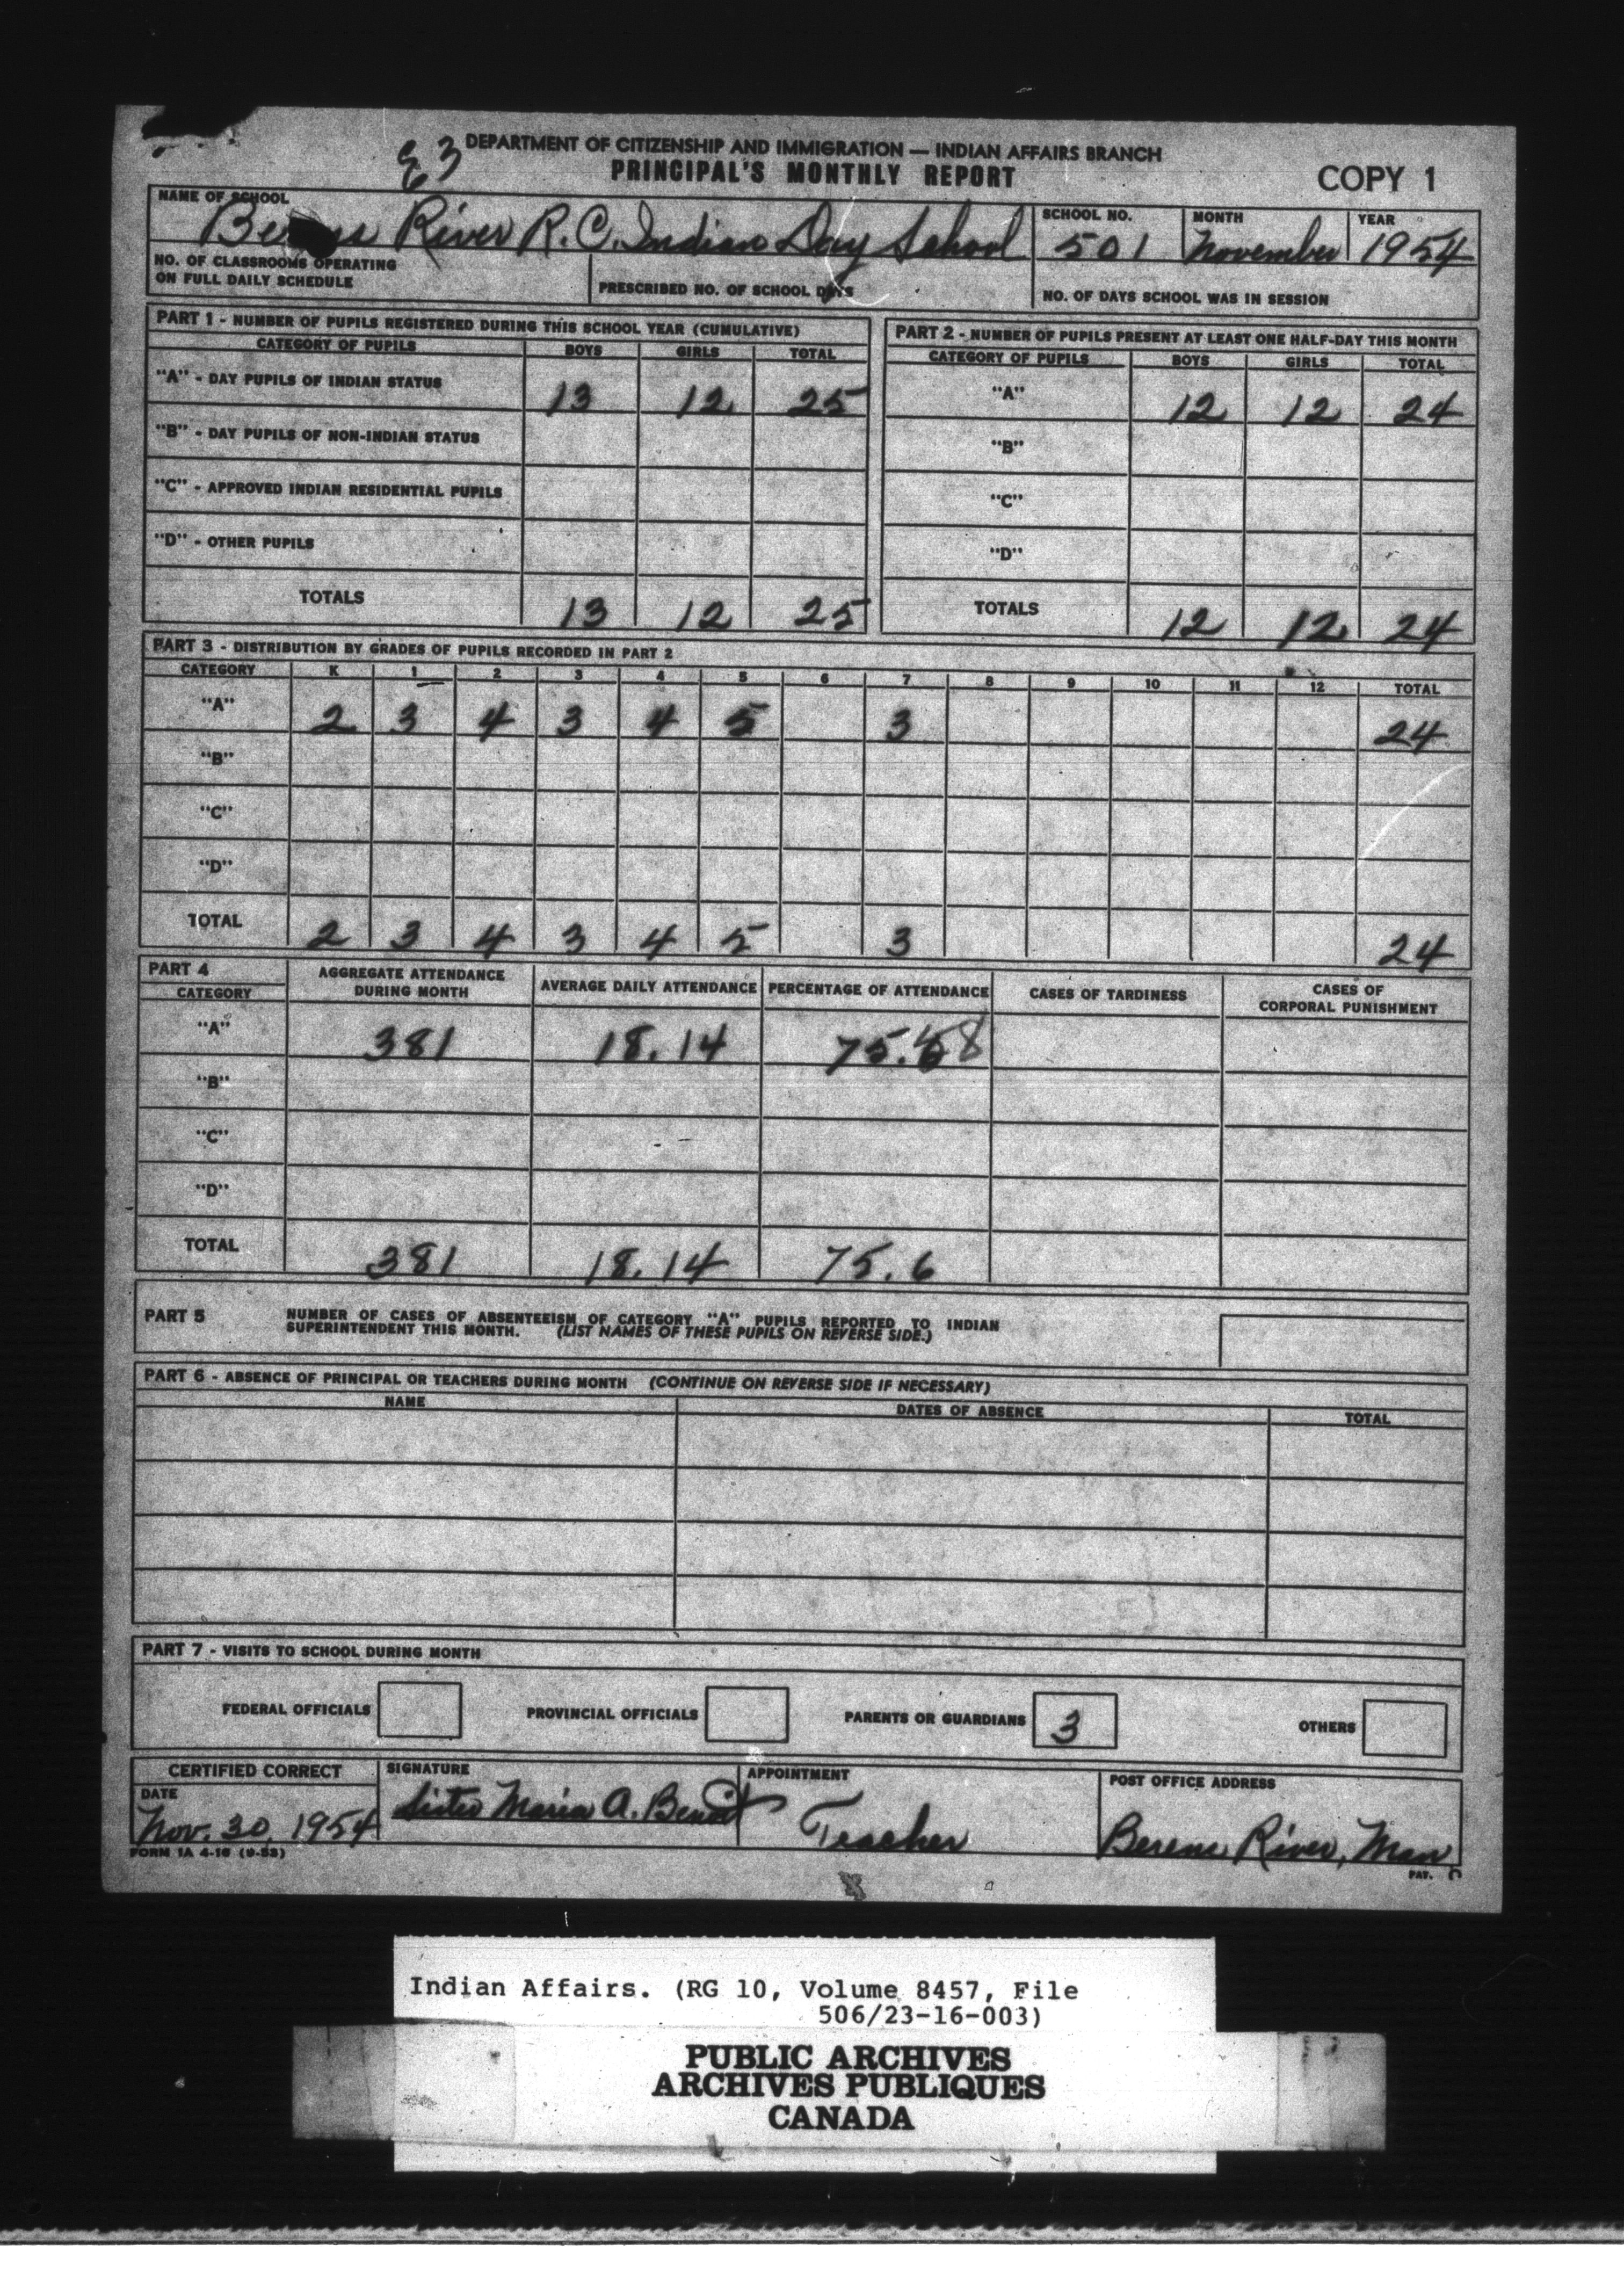 DEPARTMENT OF CITIZENSHIP AND IMMIGRATION — INDIAN AFFAIRS BRANCH
PRINCIPAL'S MONTHLY REPORT
COPY 1
NAME OF SCHOOL
Berens River R. C. Indian Day School
SCHOOL NO. 501
MONTH November
YEAR 1954
NO. OF CLASSROOMS OPERATING
ON FULL DAILY SCHEDULE
PRESCRIBED NO. OF SCHOOL DAYS
NO. OF DAYS SCHOOL WAS IN SESSION
PART 1 - NUMBER OF PUPILS REGISTERED DURING THIS SCHOOL YEAR (CUMULATIVE)
CATEGORY OF PUPILS BOYS GIRLS TOTAL
"A" - DAY PUPILS OF INDIAN STATUS 13 12 25
"B" - DAY PUPILS OF NON-INDIAN STATUS
"C" - APPROVED INDIAN RESIDENTIAL PUPILS
"D" - OTHER PUPILS
TOTALS 13 12 25
PART 2 - NUMBER OF PUPILS PRESENT AT LEAST ONE HALF-DAY THIS MONTH
CATEGORY OF PUPILS BOYS GIRLS TOTAL
"A" 12 12 24
"B"
"C"
"D"
TOTALS 12 12 24
PART 3 - DISTRIBUTION BY GRADES OF PUPILS RECORDED IN PART 2
CATEGORY K 1 2 3 4 5 6 7 8 9 10 11 12 TOTAL
"A" 2 3 4 3 4 5 3 24
"B"
"C"
"D"
TOTAL 2 3 4 3 4 5 3 24
PART 4
CATEGORY
AGGREGATE ATTENDANCE
DURING MONTH
AVERAGE DAILY ATTENDANCE
PERCENTAGE OF ATTENDANCE
CASES OF TARDINESS
CASES OF
CORPORAL PUNISHMENT
"A" 381 18.14
"B"
"C"
"D"
TOTAL 381 18.14 75.6
PART 5 NUMBER OF CASES OF ABSENTEEISM OF CATEGORY "A" PUPILS REPORTED TO INDIAN
SUPERINTENDENT THIS MONTH. (LIST NAMES OF THESE PUPILS ON REVERSE SIDE.)
PART 6 - ABSENCE OF PRINCIPAL OR TEACHERS DURING MONTH (CONTINUE ON REVERSE SIDE IF NECESSARY)
NAME DATES OF ABSENCE TOTAL
PART 7 - VISITS TO SCHOOL DURING MONTH
FEDERAL OFFICIALS PROVINCIAL OFFICIALS PARENTS OR GUARDIANS 3 OTHERS
CERTIFIED CORRECT
DATE
Nov. 30, 1954
SIGNATURE
Sister Maria A. Benoit
APPOINTMENT
Teacher
POST OFFICE ADDRESS
Berens River, Man
FORM 1A 4-16 (9-53)
PAT.
Indian Affairs. (RG 10, Volume 8457, File
506/23-16-003)
PUBLIC ARCHIVES
ARCHIVES PUBLIQUES
CANADA